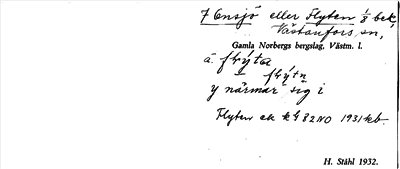 7 Ensjö eller Flyten 1/8 bek,
Västanfors sn,
Gamla Norbergs bergslag, Västm. l.
y närmar sig i
Flyten ek kg 82 NO 1931 kb.
H. Ståhl 1932.